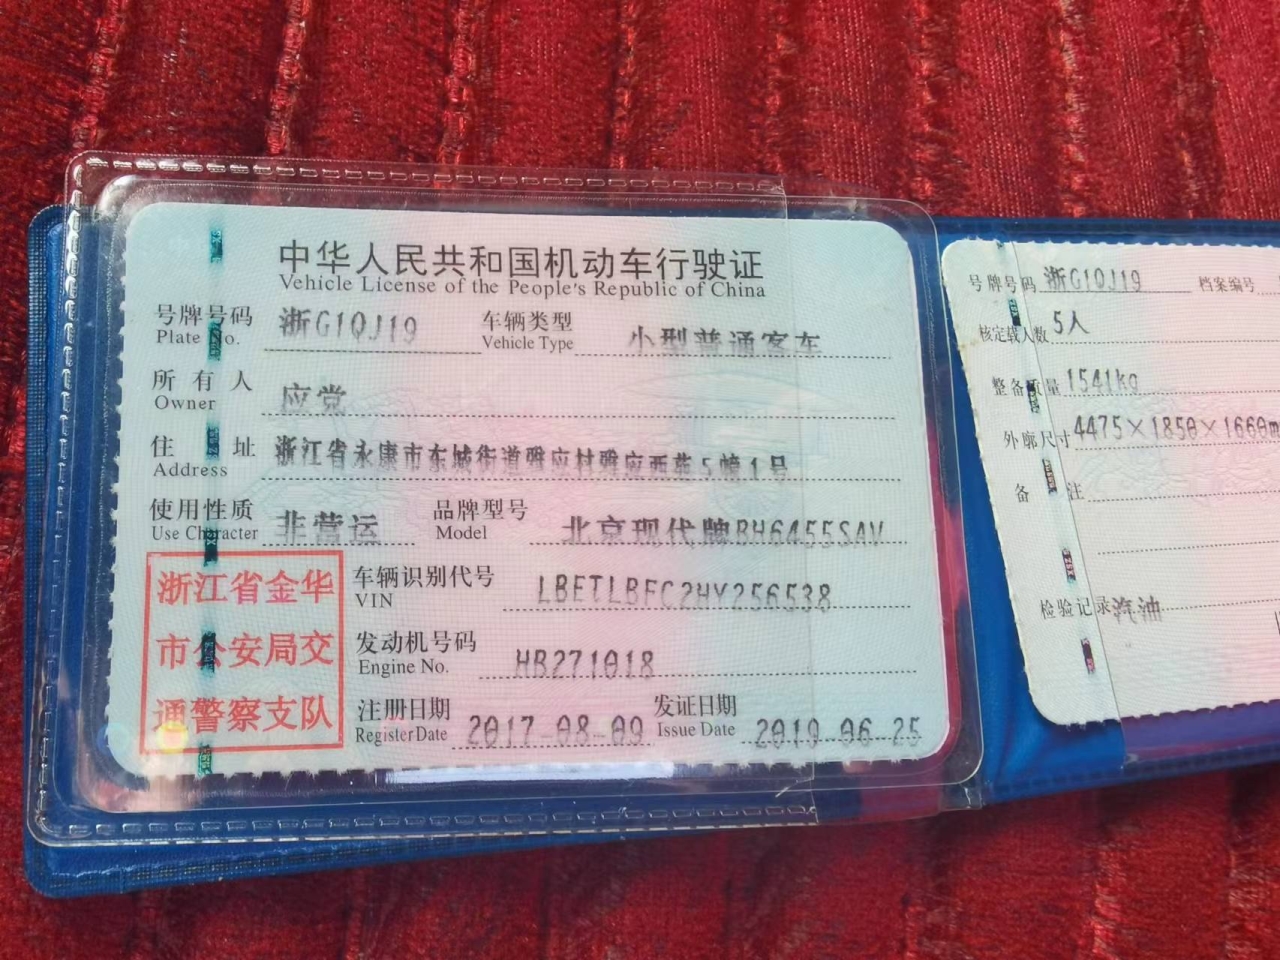 中华人民共和国机动车行驶证
Vehicle License of the People's Republic of China
号牌号码 浙G1QJ19 车辆类型 小型普通客车
Plate No. Vehicle Type
所有人 应党
Owner
住址 浙江省永康市东城街道雅应村雅应西苑5幢1号
Address
使用性质 非营运 品牌型号 北京现代牌BH6455SAV
Use Character Model
浙江省金华
市公安局交
通警察支队
车辆识别代号 LBETLBFC2HY256538
VIN
发动机号码 HB271018
Engine No.
注册日期 2017-08-09 发证日期 2019-06-25
Register Date Issue Date
号牌号码 浙G1QJ19 档案编号
核定载人数 5人
整备质量 1541kg
外廓尺寸 4475×1850×1660m
备注
检验记录 汽油